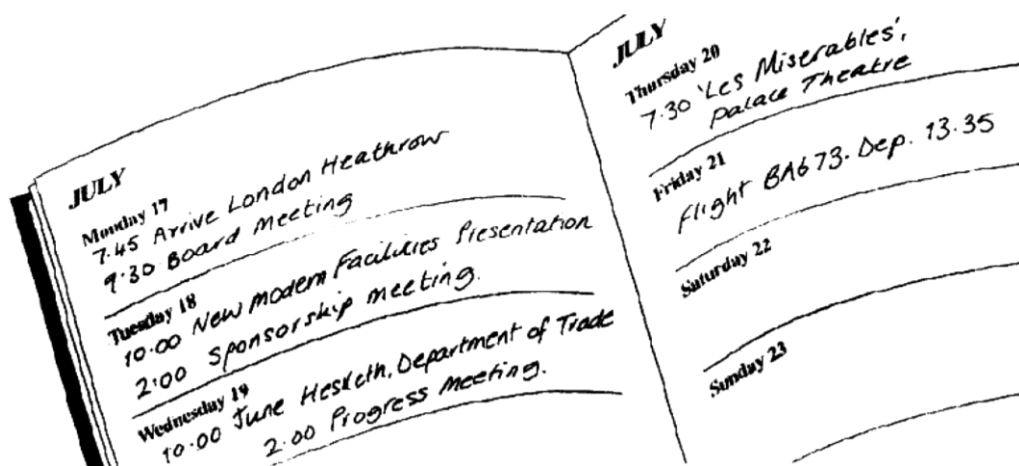 JULY
Monday 17
7.45 Arrive London Heathrow
9.30 Board Meeting
Tuesday 18
10.00 New Modern Facilities Presentation
2.00 Sponsorship meeting.
Wednesday 19
10.00 June Hesketh, Department of Trade
2.00 Progress Meeting.
JULY
Thursday 20
7.30 'Les Miserables',
Palace Theatre
Friday 21
flight BA673. Dep. 13.35
Saturday 22
Sunday 23